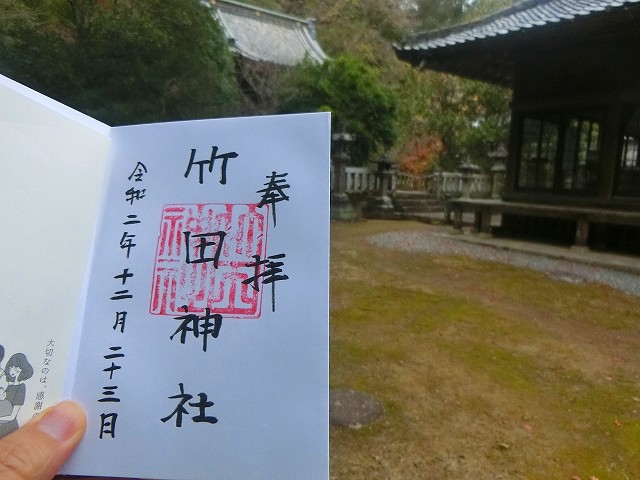 奉拝
竹田神社
令和二年十二月二十三日
大切なのは、感謝の